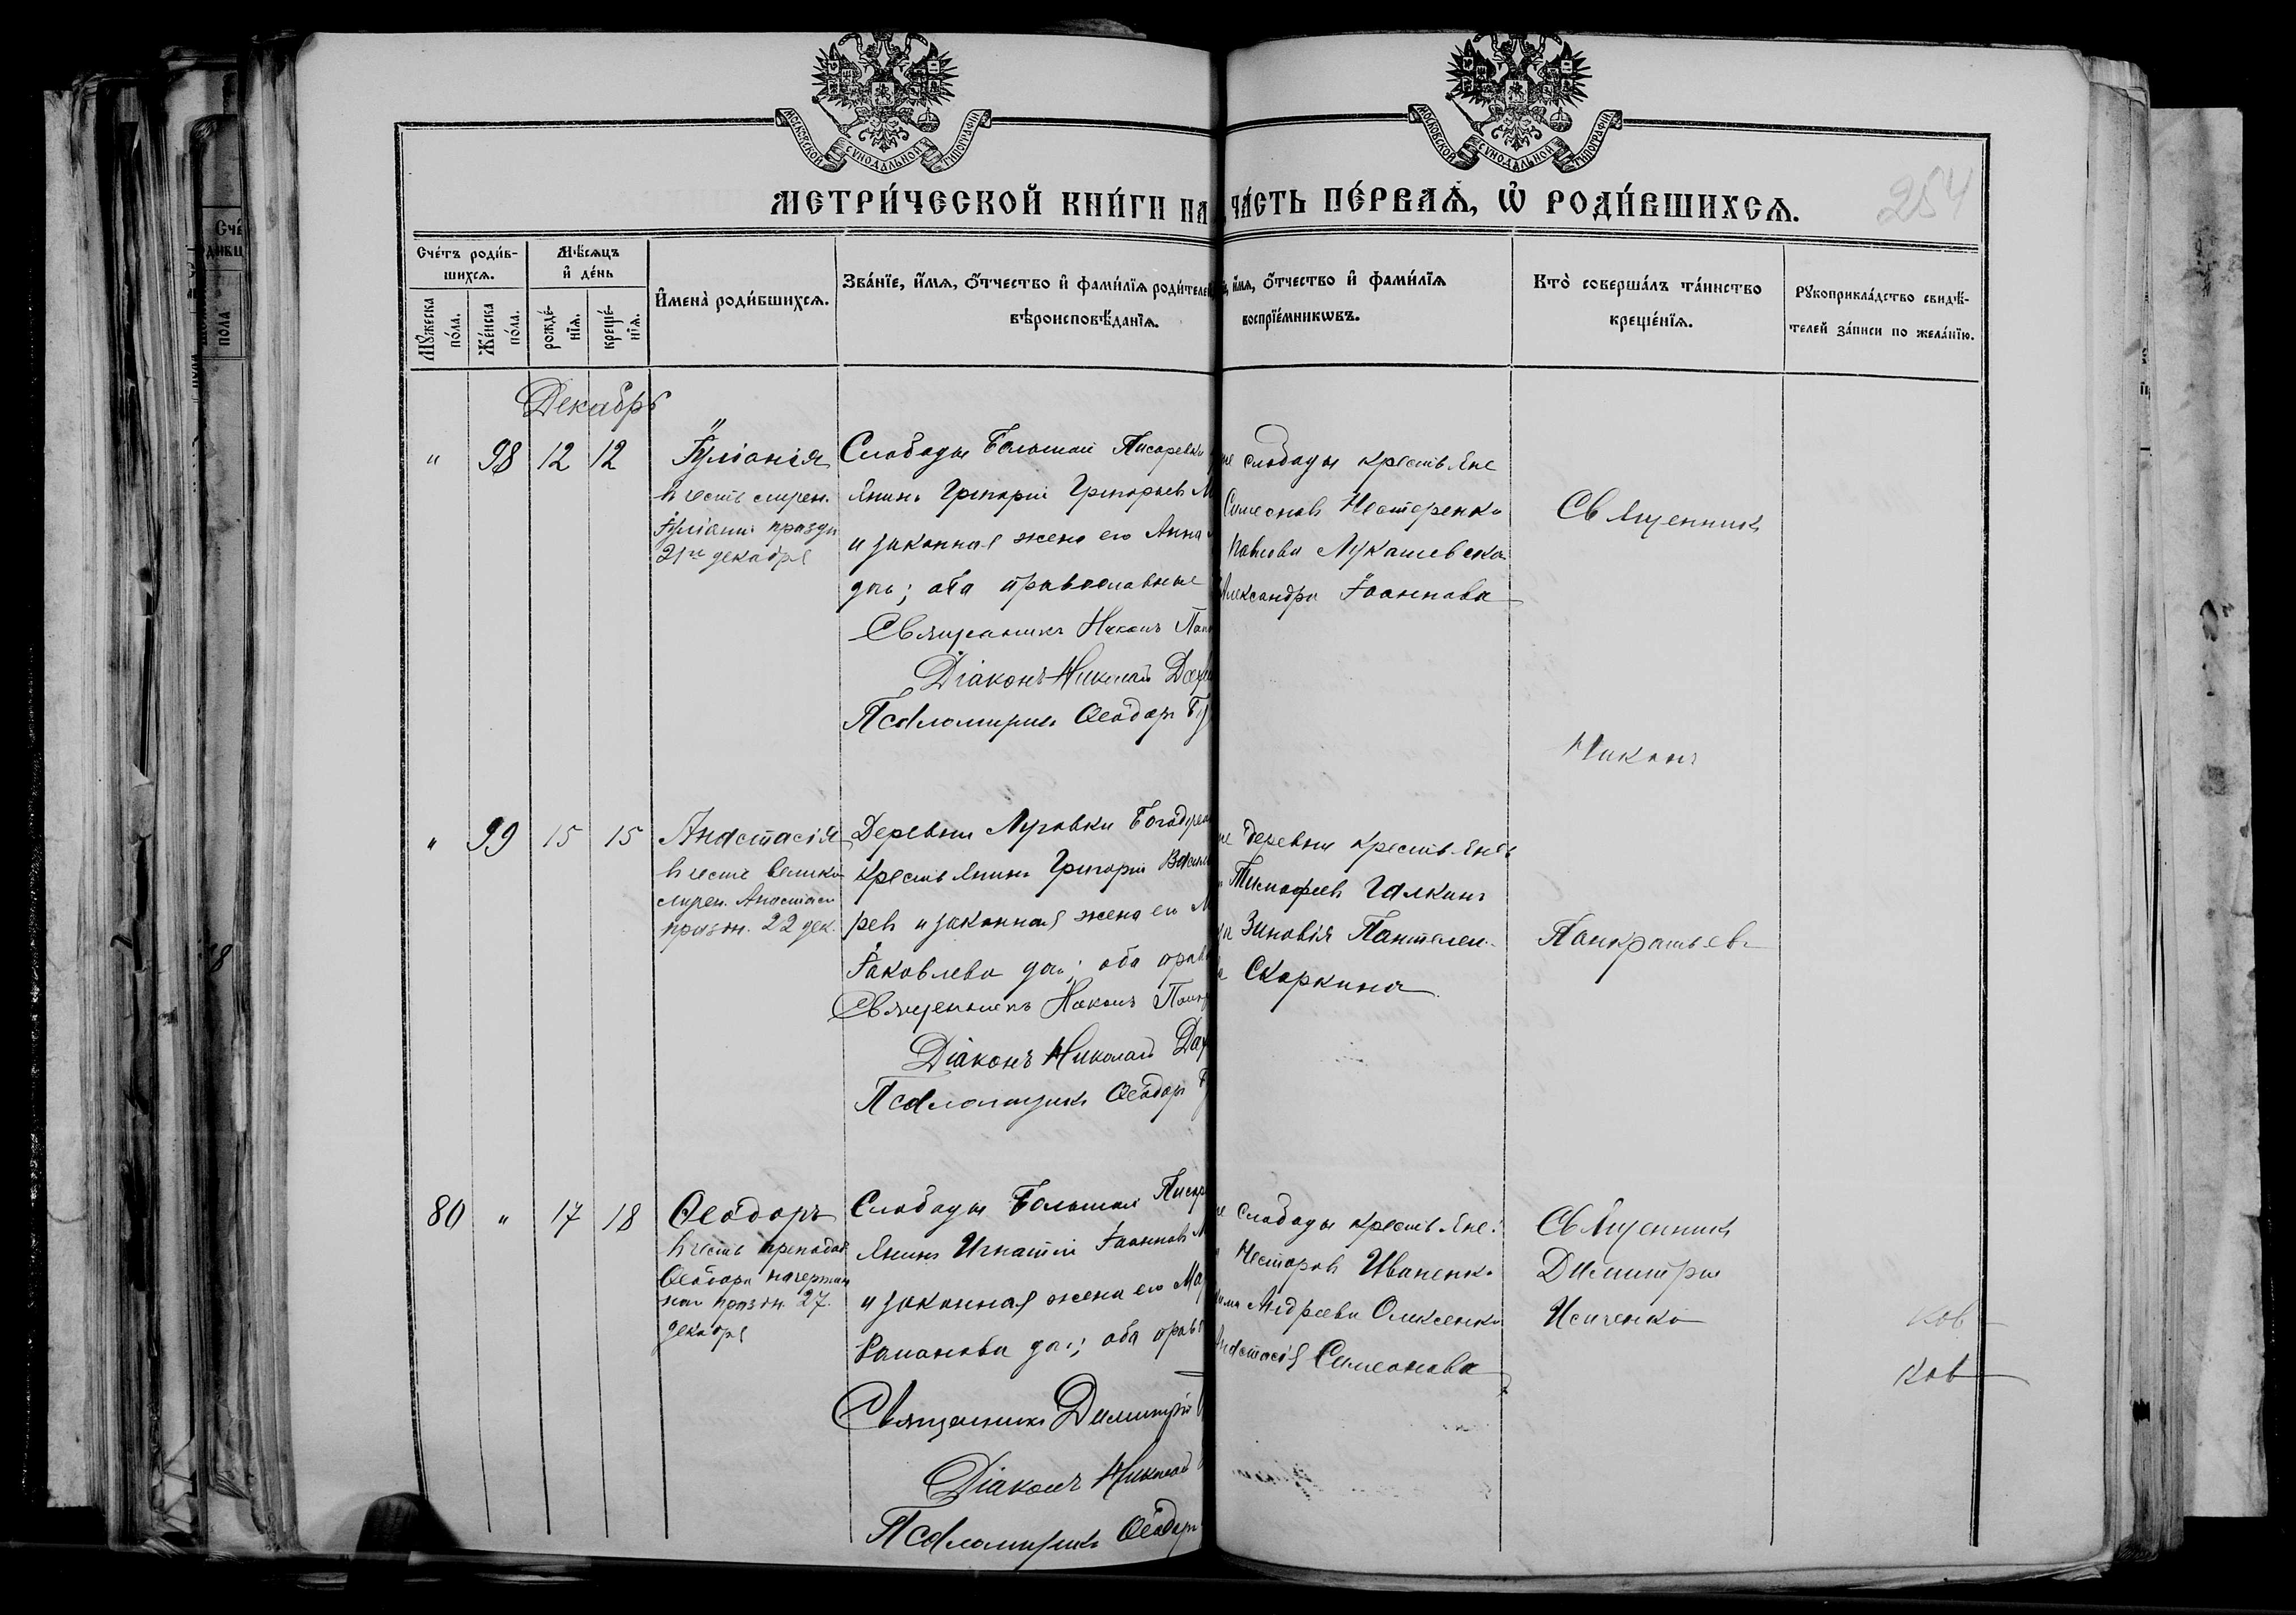 МОСКОВСКОЙ СѴНОДАЛЬНОЙ ТИПОГРАФІИ
МОСКОВСКОЙ СѴНОДАЛЬНОЙ ТИПОГРАФІИ
МЕТРИ́ЧЕСКОЙ КНИ́ГИ НА
ЧА́СТЬ ПЕ́РВАѦ, Ѡ҆ РОДИ́ВШИХСѦ.
254
Сче́тъ роди́в-
шихсѧ.
Мѣ́сѧцъ
и҆ де́нь
Мꙋ́жеска
по́ла.
Же́нска
по́ла.
рожде́-
нїѧ.
креще́-
нїѧ.
И҆мена̀ роди́вшихсѧ.
Зва́нїе, и҆́мѧ, ѻ҆́тчество и҆ фами́лїѧ роди́телей
вѣроисповѣ́данїѧ.
и҆́мѧ, ѻ҆́тчество и҆ фами́лїѧ
воспрїе́мникѡвъ.
Кто̀ соверша́лъ та́инство
креще́нїѧ.
Рꙋкоприкла́дство свидѣ́-
телей за́писи по жела́нїю.
Декабрь
" 98 12 12
Іуліанія
въ честь мучен.
Іуліаніи праздн
21го декабря
Слободы Большой Писаревки
янинъ Григорій Григорьевъ М
и законная жена его Анна
ва; оба православные
Священникъ Никонъ Пан
Діаконъ Николай Дах
Псаломщикъ Ѳеодоръ Бу
слободы крестьяне
Симеоновъ Нестеренко
Павлова Лукашевска
Александра Іоаннова
Священникъ
Никонъ
Панкратьевъ
" 99 15 15
Анастасія
въ честь велико
мучен. Анастасіи
праздн. 22 дек.
Деревни Луговки
крестьянинъ Григорій Васил
ревъ и законная жена его М
Іаковлева; оба прав
Священникъ Никонъ Панк
Діаконъ Николай Дах
Псаломщикъ Ѳеодоръ Б
деревни крестьяне
Тимофеевъ Галкинъ
Зиновія Пантелеи
Скоркина
80 " 17 18
Ѳеодоръ
въ честь преподоб
Ѳеодора начертан
наго праздн. 27
декабря
Слободы Большой Писар
янинъ Игнатій Іоанновъ М
и законная жена его Мар
Романова; оба право
Священникъ Димитрій
Діаконъ Николай
Псаломщикъ Ѳеодоръ
слободы крестьяне:
Несторовъ Иваненко
Андреева Олексенко
Анастасія Симеонова
Священникъ
Димитрій
Исиченко
ковъ
ковъ